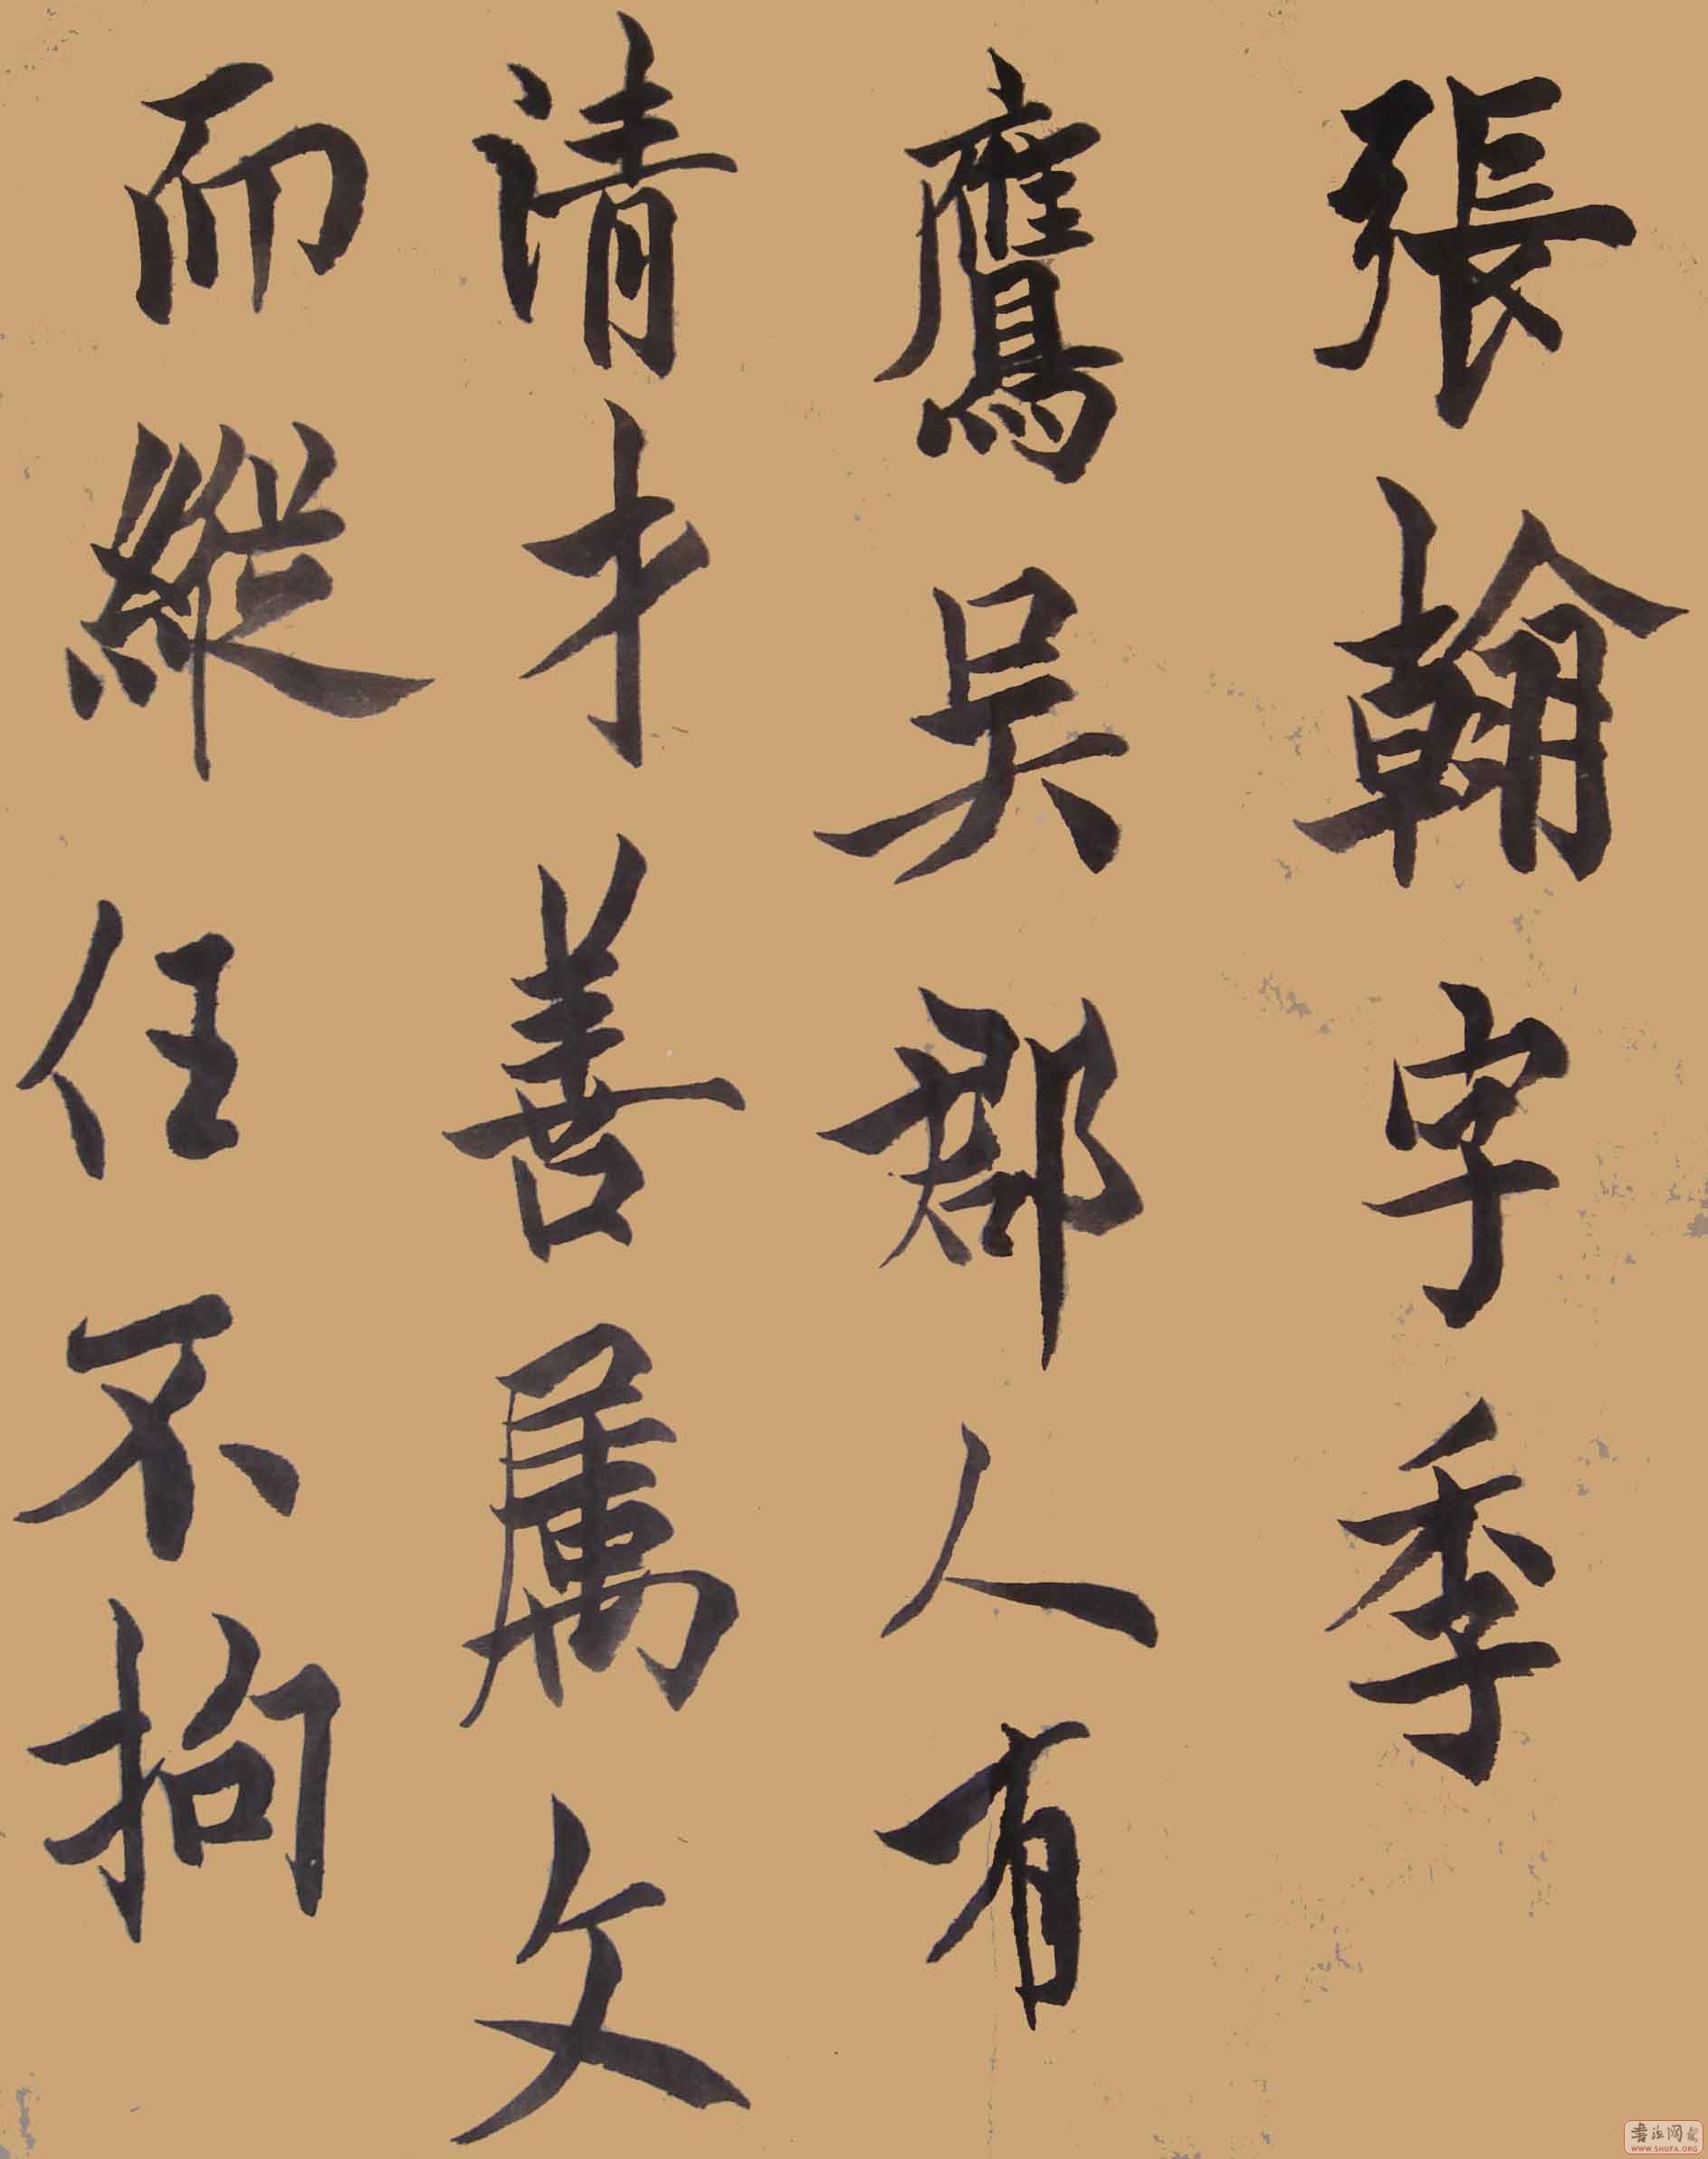 張翰字季
鷹吳郡人有
清才善屬文
而縱任不拘
書法网
WWW.SHUFA.ORG